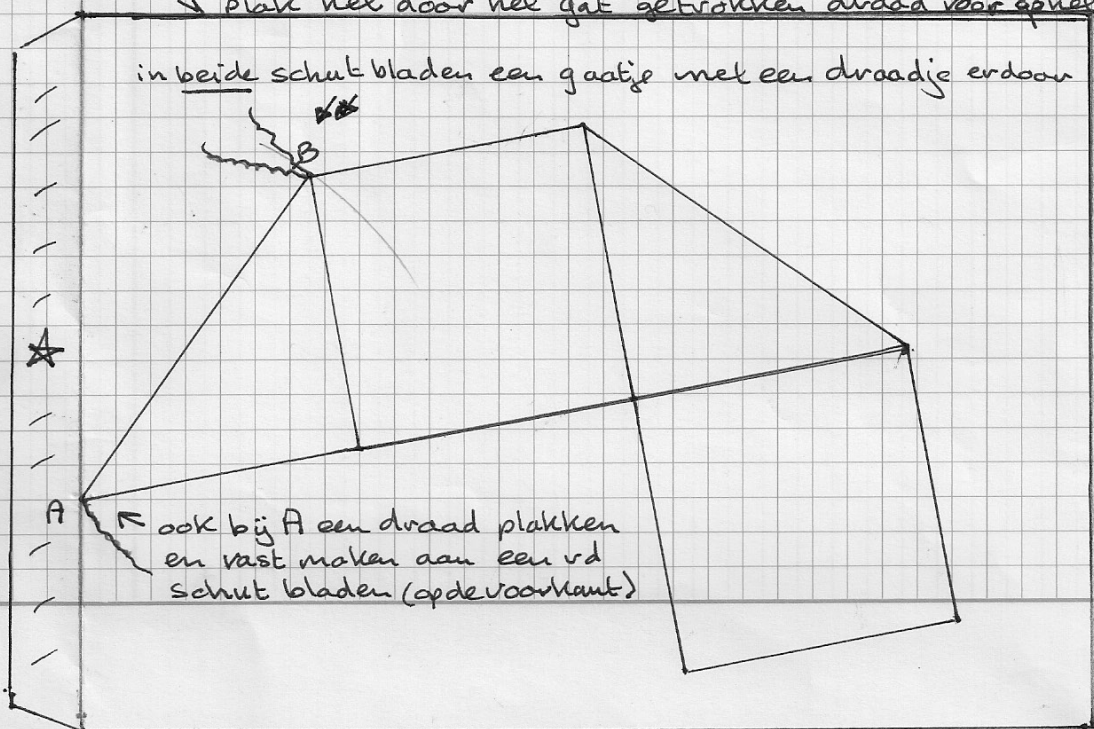 plak het door het gat getrokken draad voor
in beide schutbladen een gaatje met een draadje erdoor
B
A
ook bij A een draad plakken
en vast maken aan een vd
schut bladen (op de voorkant)